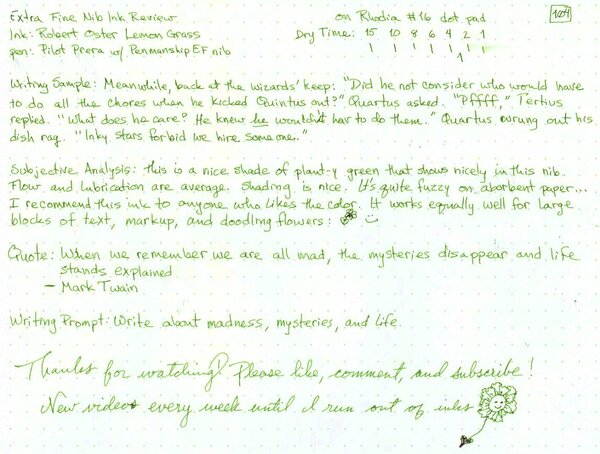 Extra Fine Nib Ink Review on Rhodia #16 dot pad 104
Ink: Robert Oster Lemon Grass Dry Time: 15 10 8 6 4 2 1
pen: Pilot Prera w/ Penmanship EF nib
Writing Sample: Meanwhile, back at the wizards' keep: "Did he not consider who would have
to do all the chores when he kicked Quintus out?" Quartus asked. "Pffff," Tertius
replied. "What does he care? He knew he wouldn't have to do them." Quartus wrung out his
dish rag. "Inky stars forbid we hire someone."
Subjective Analysis: this is a nice shade of plant-y green that shows nicely in this nib.
Flow and lubrication are average. Shading is nice. It's quite fuzzy on absorbent paper...
I recommend this ink to anyone who likes the color. It works equally well for large
blocks of text, markup, and doodling flowers:
Quote: When we remember we are all mad, the mysteries disappear and life
stands explained
- Mark Twain
Writing Prompt: Write about madness, mysteries, and life.
Thanks for watching! Please like, comment, and subscribe!
New videos every week until I run out of inks